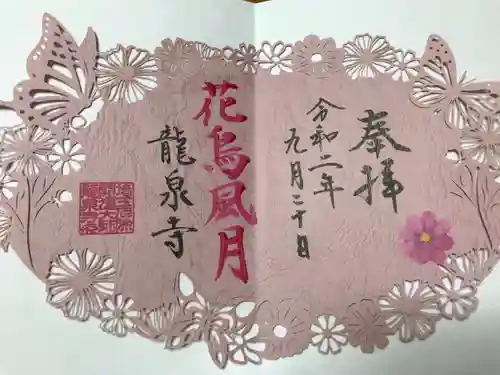 奉拝
令和二年
九月二十日
花鳥風月
龍泉寺